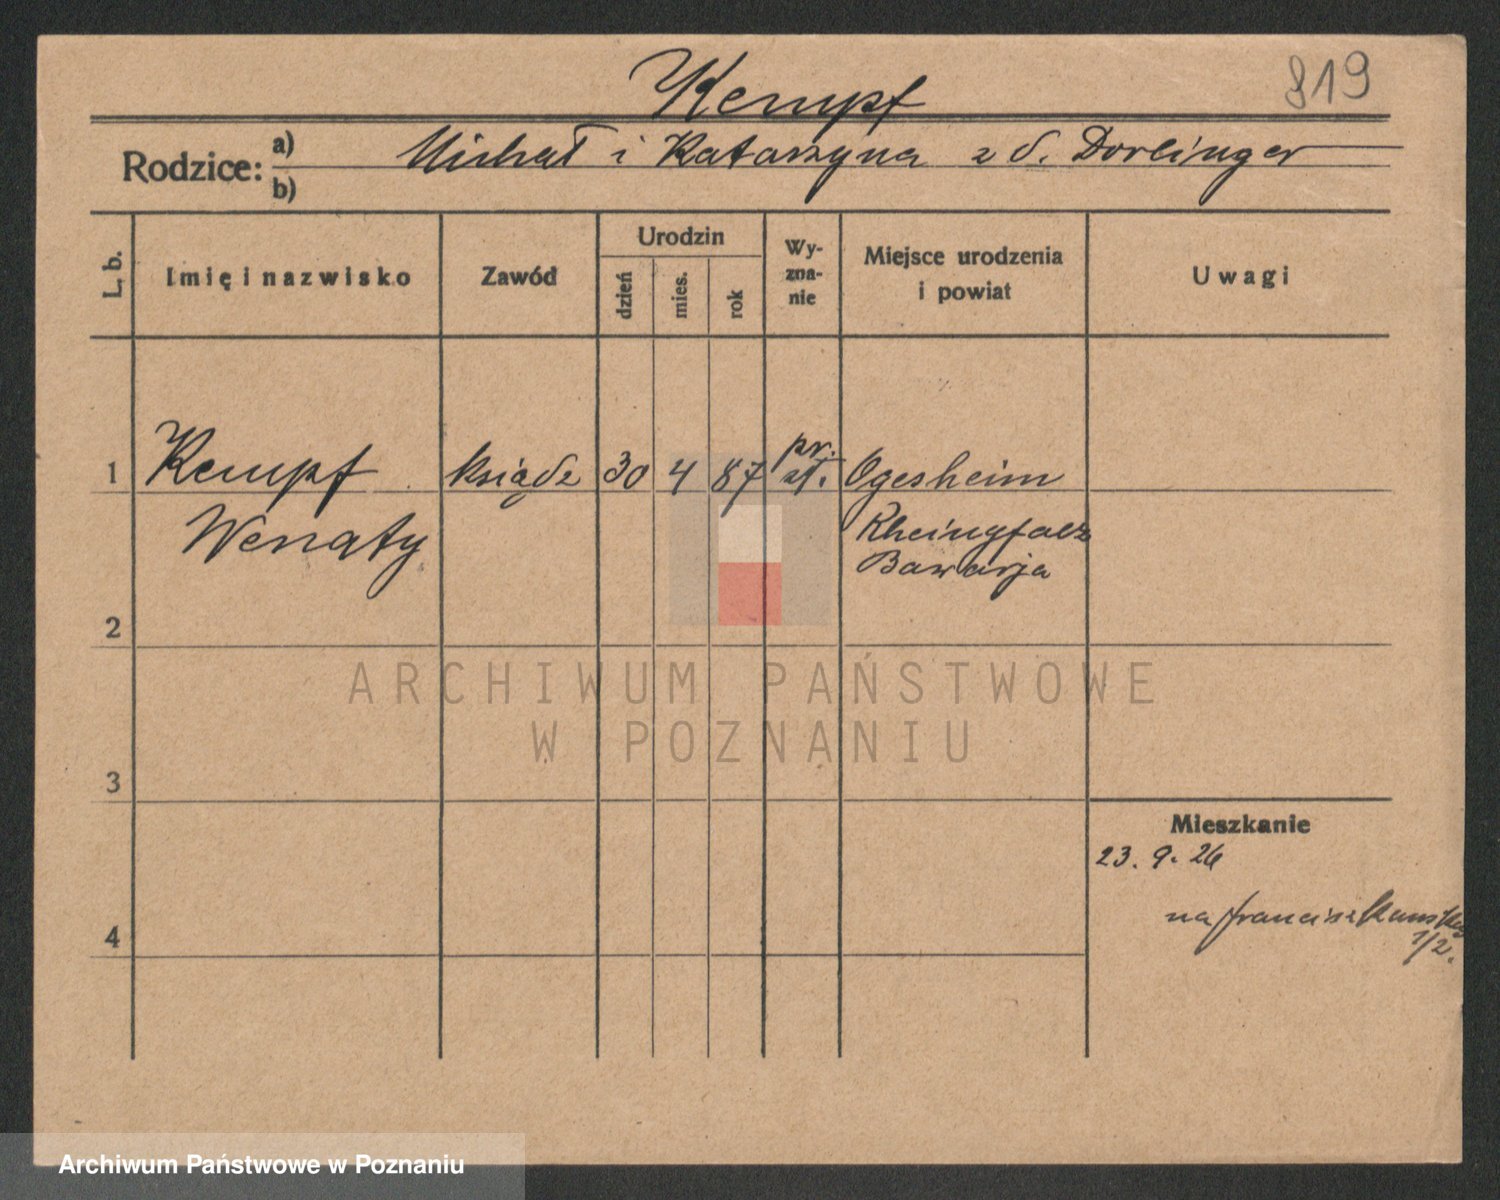 819
Kempf
Rodzice: a) Michał i Katarzyna z d. Dorlinger
b)
L. b. Imię i nazwisko Zawód Urodzin dzień mies. rok Wy-zna-nie Miejsce urodzenia i powiat Uwagi
1 Kempf ksiądz 30 4 87 Ogesheim
Wenaty Rheingfalz
Bawarja
2
ARCHIWUM PAŃSTWOWE
W POZNANIU
3
Mieszkanie
23. 9. 26
na franciszkańską
1/2.
4
Archiwum Państwowe w Poznaniu